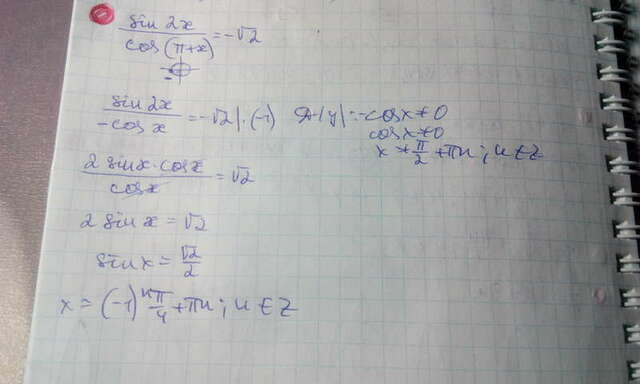 3
sin 2x / cos(π+x) = -√2
sin 2x / -cos x = -√2 | · (-1)
-cos x ≠ 0
cos x ≠ 0
x ≠ π/2 + πn ; n ∈ Z
2 sin x · cos x / cos x = √2
2 sin x = √2
sin x = √2/2
x = (-1)ⁿ π/4 + πn ; n ∈ Z